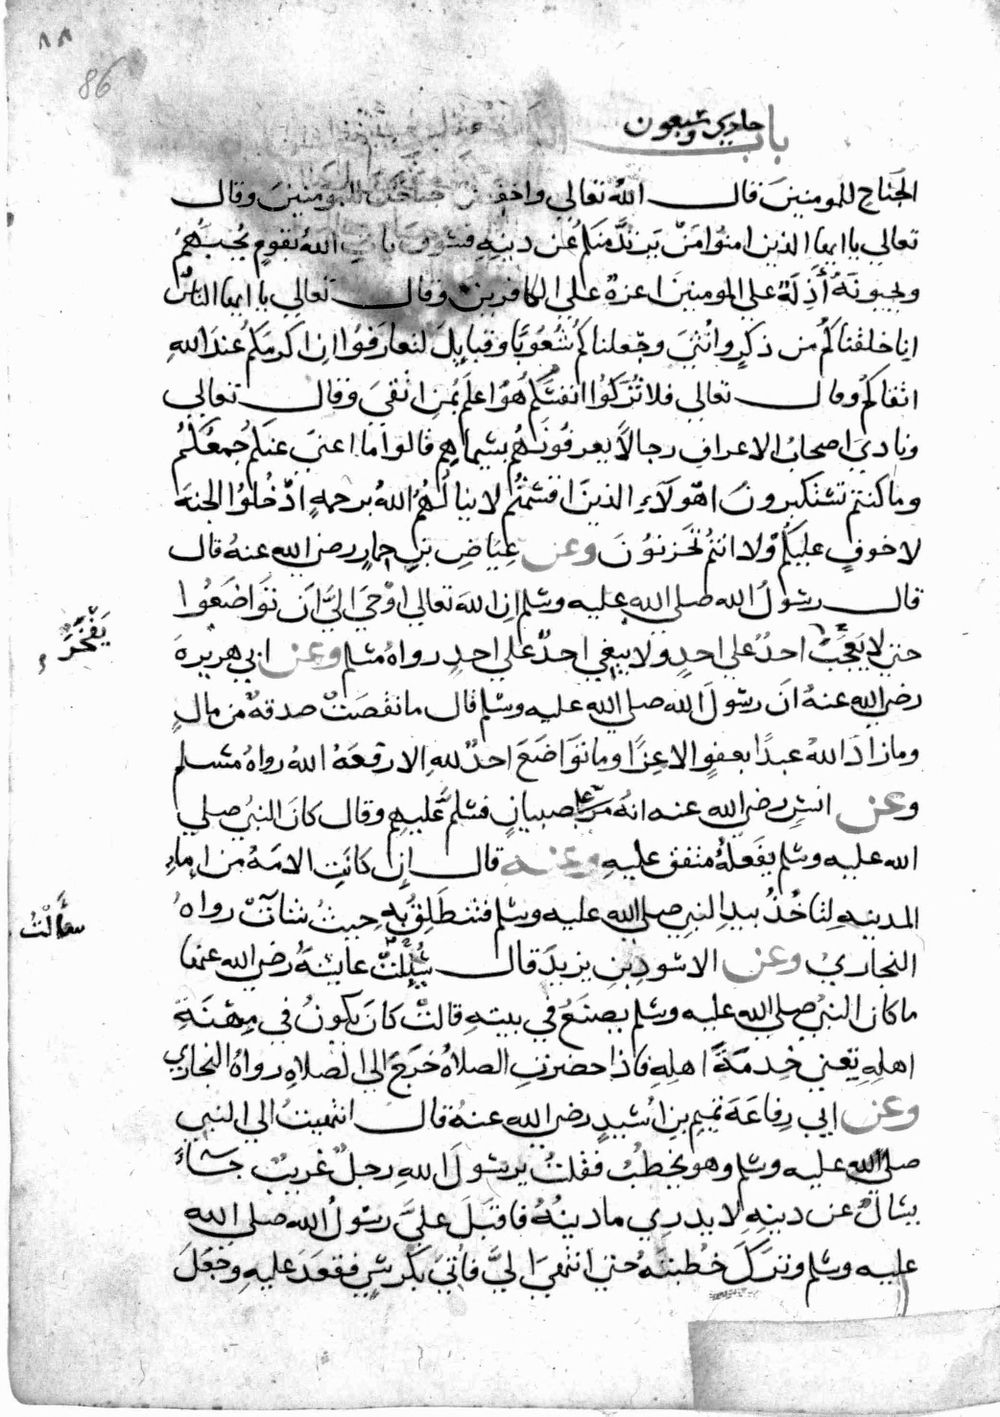 ٨٨
86
باب حادي وسبعون
الجناح للمومنين قال الله تعالي واخفض جناحك للمومنين وقال
تعالي يا ايها الذين امنوا من يرتد منكم عن دينه فسوف ياتي الله بقوم يحبهم
ويحبونه أذلة علي المومنين اعزة علي الكافرين وقال تعالي يا ايها الناس
انا خلقناكم من ذكر وانثي وجعلناكم شعوبا وقبايل لتعارفوا ان اكرمكم عند الله
اتقاكم وقال تعالي فلا تزكوا انفسكم هو اعلم بمن اتقي وقال تعالي
ونادي اصحاب الاعراف رجالا يعرفونهم بسيماهم قالوا ما اغني عنكم جمعكم
وما كنتم تستكبرون اهولاء الذين اقسمتم لا ينالهم الله برحمه ادخلوا الجنه
لا خوف عليكم ولا انتم تحزنون وعن عياض بن حمار رضي الله عنه قال
قال رسول الله صلي الله عليه وسلم ان الله تعالي اوحي الي ان تواضعوا
حتي لا يفخر احد علي احد ولا يبغي احد علي احد رواه مسلم وعن ابي هريره
يفخر
رضي الله عنه ان رسول الله صلي الله عليه وسلم قال ما نقصت صدقه من مال
وما زاد الله عبدا بعفو الا عزا وما تواضع احد لله الا رفعه الله رواه مسلم
وعن انس رضي الله عنه انه مر علي صبيان فسلم عليهم وقال كان النبي صلي
الله عليه وسلم يفعله متفق عليه وعنه قال ان كانت الامه من اماء
المدينه لتاخذ بيد النبي صلي الله عليه وسلم فتنطلق به حيث شات رواه
سالت
البخاري وعن الاسود بن يزيد قال سئلت عايشه رضي الله عنها
ما كان النبي صلي الله عليه وسلم يصنع في بيته قالت كان يكون في مهنة
اهله يعني خدمة اهله فاذا حضرت الصلاه خرج الي الصلاه رواه البخاري
وعن ابي رفاعة تميم بن اسيد رضي الله عنه قال انتهيت الي النبي
صلي الله عليه وسلم وهو يخطب فقلت يرسول الله رجل غريب جاء
يسال عن دينه لا يدري ما دينه فاقبل علي رسول الله صلي الله
عليه وسلم وترك خطبته حتي انتهي الي فاتي بكرسي فقعد عليه وجعل